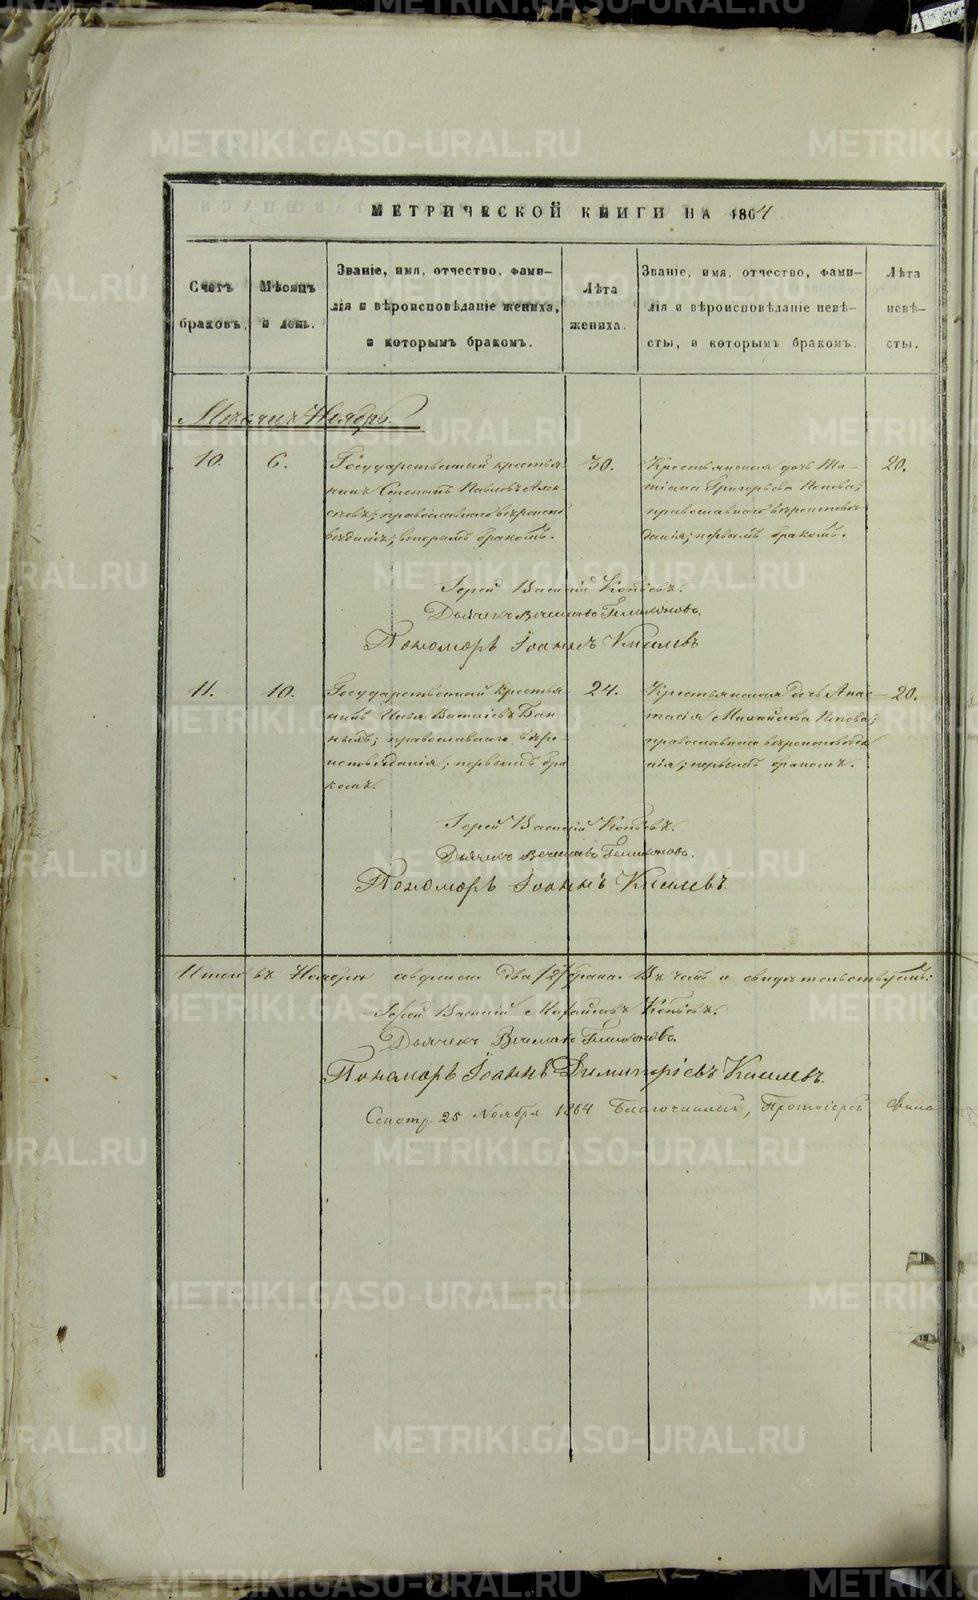 МЕТРИЧЕСКОЙ КНИГИ НА 1864
Счетъ браковъ.
Мѣсяцъ и день.
Званіе, имя, отчество, фами-
лія и вѣроисповѣданіе жениха,
и которымъ бракомъ.
Лѣта жениха.
Званіе, имя, отчество, фами-
лія и вѣроисповѣданіе невѣ-
сты, и которымъ бракомъ.
Лѣта невѣ-
сты.
Мѣсяцъ Ноябрь.
10.
6.
Государственный крестья-
нинъ Степанъ Павловъ Алек-
сѣевъ; православнаго вѣроиспо
вѣданія; вторымъ бракомъ.
30.
Крестьянская дочь Та-
тіана Григорьева Попова;
православнаго вѣроисповѣ-
данія; первымъ бракомъ.
20.
Іерей Василій
Дьячекъ
Пономарь Іоаннъ Киселевъ
11.
10.
Государственный крестья-
нинъ Илья Василіевъ Бан-
ныхъ; православнаго вѣро-
исповѣданія; первымъ бра-
комъ.
24.
Крестьянская дочь Анас-
тасія Михайлова Попова;
православнаго вѣроисповѣда
нія; первымъ бракомъ.
20.
Іерей Василій
Дьячекъ
Пономарь Іоаннъ Киселевъ.
Итого въ Ноябрѣ два /2/ брака. Въ чемъ и свидѣтельствуемъ:
Іерей Василій Михайловъ
Дьячекъ
Пономарь Іоаннъ Димитріевъ Киселевъ.
25 Ноября 1864 Благочинный, Протоіерей
METRIKI.GASO-URAL.RU